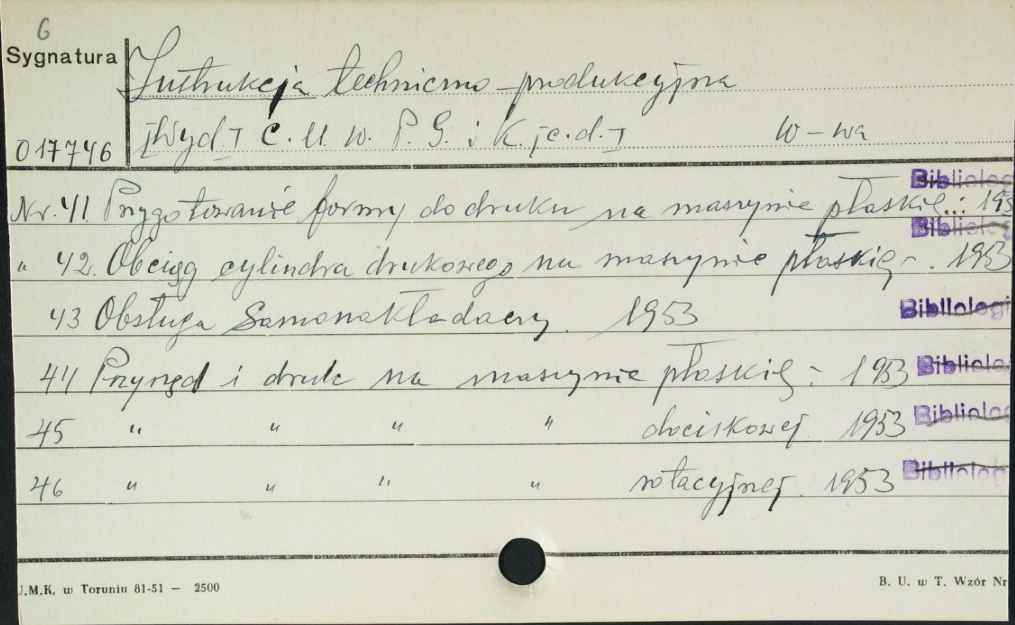 6
Sygnatura
017746
Instrukcja techniczno-produkcyjna
[Wyd.] C. U. W. P. G. i K. [c.d.] W-wa
Nr. 41 Przygotowanie formy do druku na maszynie płaskiej. 195
" 42. Obciąg cylindra drukowego na maszynie płaskiej. 1953
43 Obsługa Samonakładaczy. 1953
44 Przyrząd i druk na maszynie płaskiej 1953
45 " " " " dociskowej 1953
46 " " " " rotacyjnej. 1953
Bibliolog
Bibliolog
Bibliologi
Bibliolo
Bibliolog
Bibliolog
U.M.K. w Toruniu 81-51 — 2500
B. U. w T. Wzór Nr